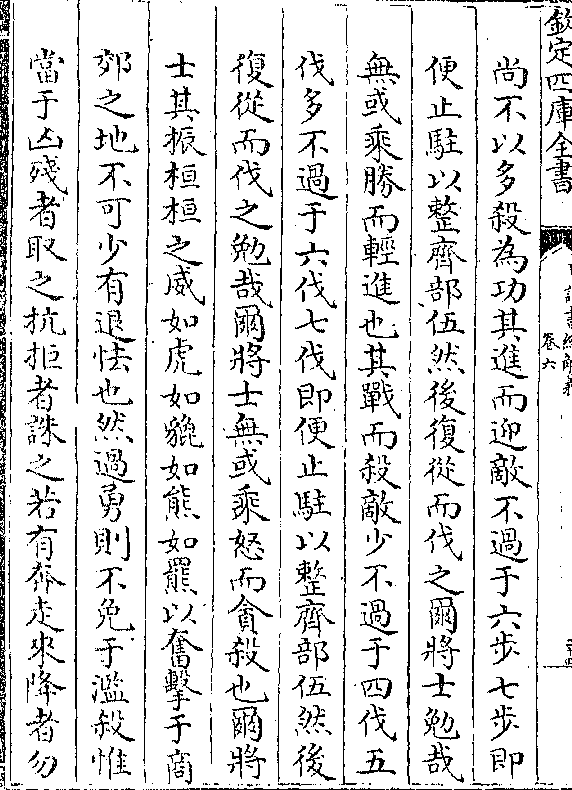 欽定四庫全書
日講書經解義
卷六
尚不以多殺為功其進而迎敵不過于六步七步即
便止駐以整齊部伍然後復從而伐之爾將士勉哉
無或乘勝而輕進也其戰而殺敵少不過于四伐五
伐多不過于六伐七伐即便止駐以整齊部伍然後
復從而伐之勉哉爾將士無或乘怒而貪殺也爾將
士其振桓桓之威如虎如貔如熊如羆以奮擊于商
郊之地不可少有退怯也然過勇則不免于濫殺惟
當于凶殘者取之抗拒者誅之若有奔走來降者勿